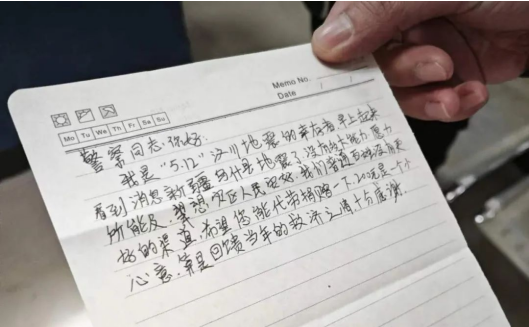 Memo No.
Date / /
Mo Tu We Th Fr Sa Su
警察同志:你好.
我是"5.12"汶川地震的幸存者,早上起来
看到消息新疆乌什县地震了,没有 大能力
所能及, 想 灾区人民 我们普通百姓没有更
好的渠道,希望您能代劳捐赠一下,200元是一个小
心意,算是回馈当年的救济之情,十分感谢.